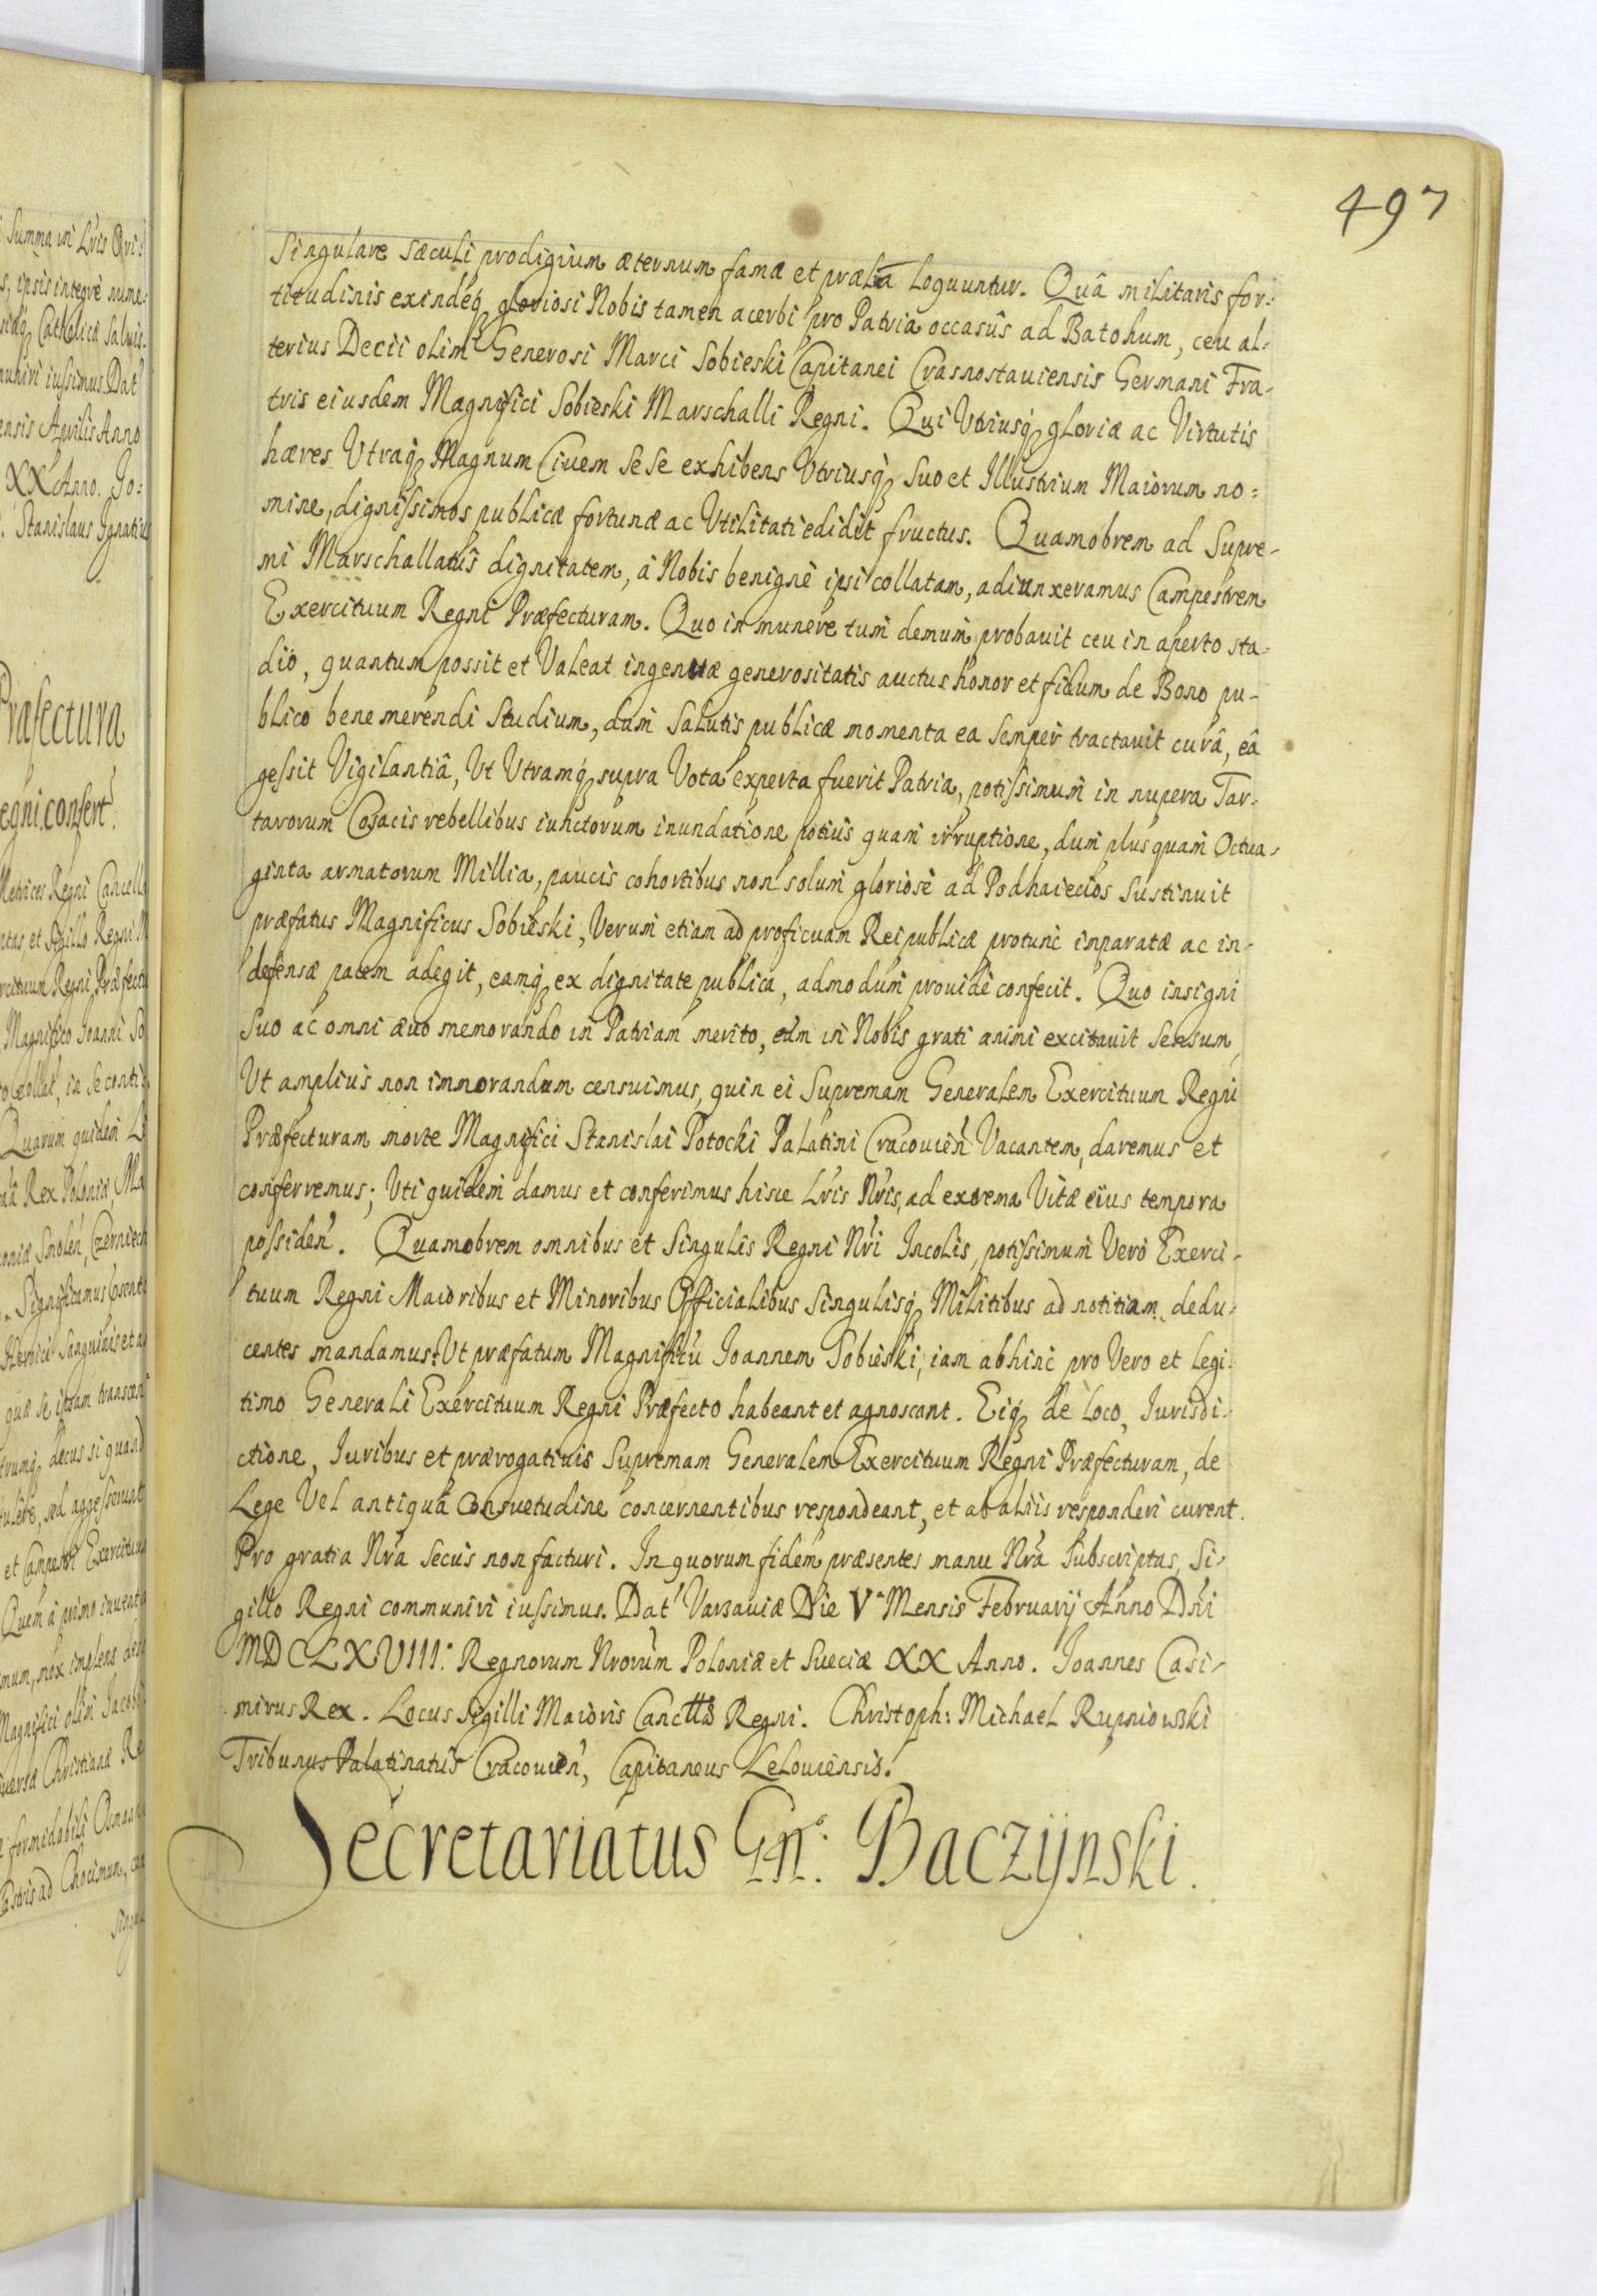 497
Singulare sæculi prodigium æternum famæ et prælia loquuntur. Quâ militaris for:
titudinis exindeq; gloriosi Nobis tamen acerbi pro Patria occasûs ad Batohum, ceu al:
terius Decii olim Generosi Marci Sobieski Capitanei Crasnostauiensis Germani Fra-
tris eiusdem Magnifici Sobieski Marschalli Regni. Qui Vtriusq; gloriæ ac Virtutis
hæres Vtraq; Magnum Ciuem Sese exhibens Vtriusq; Suo et Illustrium Maiorum no:
mine, dignissimos publicæ fortunæ ac Vtilitati edidit fructus. Quamobrem ad Supre-
mi Marschallatûs dignitatem, à Nobis benignè ipsi collatam, adiunxeramus Campestrem
Exercituum Regni Præfecturam. Quo in munere tum demum probauit ceu in aperto sta:
dio, quantum possit et Valeat ingenuæ generositatis auctus honor et fidum de Bono pu-
blico bene merendi Studium, dum Salutis publicæ momenta ea semper tractauit curâ, eâ
gessit Vigilantiâ, Vt Vtramq; supra Vota experta fuerit Patria, potissimum in nupera Tar:
tarorum Cosacis rebellibus iunctorum inundatione potius quam irruptione, dum plus quam Octua-
ginta armatorum Millia, paucis cohortibus non solum gloriosè ad Podhaiecios Sustinuit
præfatus Magnificus Sobieski, Verum etiam ad proficuam Reipublicæ protunc imparatæ ac in-
defensæ pacem adegit, eamq; ex dignitate publica, admodum prouidè confecit. Quo insigni
Suo ac omni æuo memorando in Patriam merito, eum in Nobis grati animi excitauit Sensum,
Vt amplius non immorandum censuimus, quin ei Supremam Generalem Exercituum Regni
Præfecturam morte Magnifici Stanislai Potocki Palatini Cracouien̄ Vacantem, daremus et
conferremus; Vti quidem damus et conferimus hisce Lr̄is Nr̄is, ad extrema Vitæ eius tempora
possiden̄. Quamobrem omnibus et Singulis Regni Nr̄i Incolis, potissimum Verò Exerci-
tuum Regni Maioribus et Minoribus Officialibus Singulisq; Militibus ad notitiam dedu-
centes mandamus: Vt præfatum Magnificū Joannem Sobieski, iam abhinc pro Vero et legi:
timo Generali Exercituum Regni Præfecto habeant et agnoscant. Eiq; de loco, Jurisdi-
ctione, Juribus et prærogatiuis Supremam Generalem Exercituum Regni Præfecturam, de
Lege Vel antiquâ Consuetudine concernentibus respondeant, et ab aliis responderi curent.
Pro gratia Nr̄a Secùs non facturi. In quorum fidem præsentes manu Nr̄a Subscriptas, Si-
gillo Regni communiri iussimus. Dat̄ Varsauiæ Die V.ª Mensis Februarij Anno Dn̄i
MDCLXVIII.º Regnorum Nrorum̄ Poloniæ et Sueciæ XX Anno. Joannes Casi-
mirus Rex. Locus Sigilli Maioris Regni. Christoph: Michael Rupniowski
Tribunus Palatinatûs Cracouien̄, Capitaneus Lelouiensis.
Secretariatus Gn̄: Baczijnski.